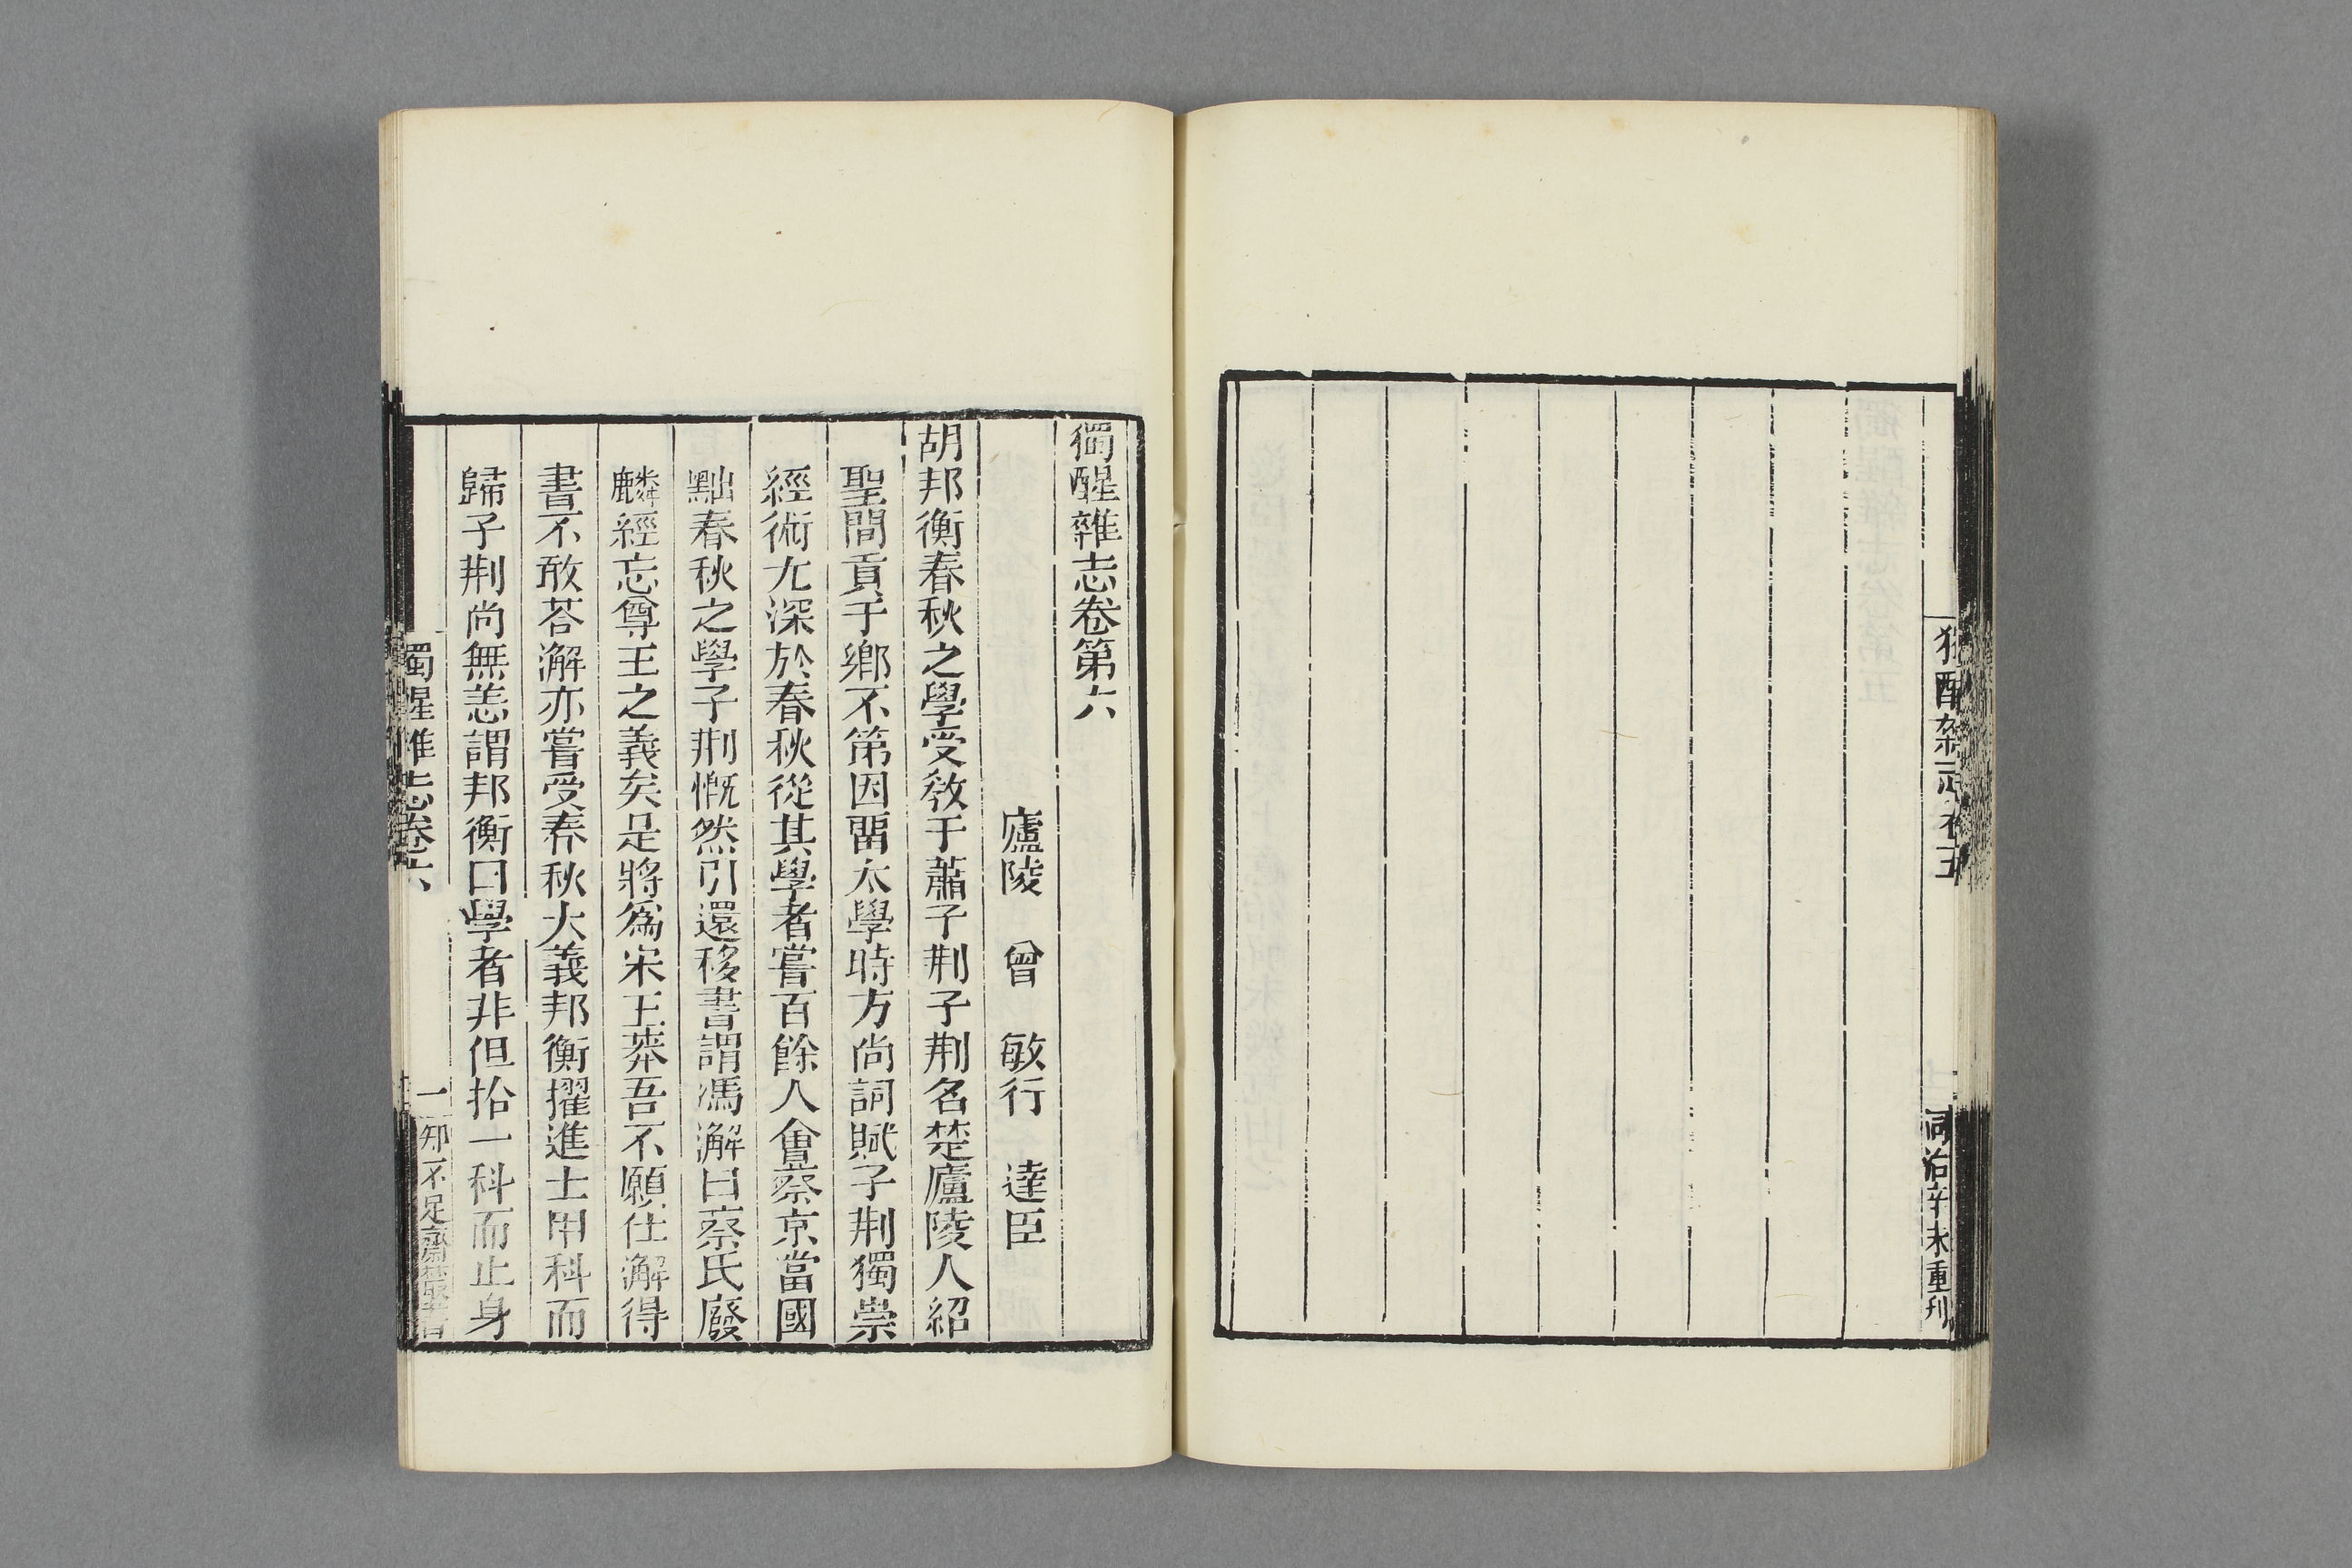 同治辛未重刊
獨醒雜志卷第六
廬陵 曾 敏行 達臣
胡邦衡春秋之學受敎于蕭子荆子荆名楚廬陵人紹
聖間貢于鄉不第因畱太學時方尚詞賦子荆獨崇
經術尤深於春秋從其學者嘗百餘人會蔡京當國
黜春秋之學子荆慨然引還移書謂馮澥曰蔡氏廢
麟經忘尊王之義矣是將爲宋王莽吾不願仕澥得
書不敢荅澥亦嘗受春秋大義邦衡擢進士甲科而
歸子荆尚無恙謂邦衡曰學者非但拾一科而止身
獨醒雜志卷六
一
知不足齋叢書